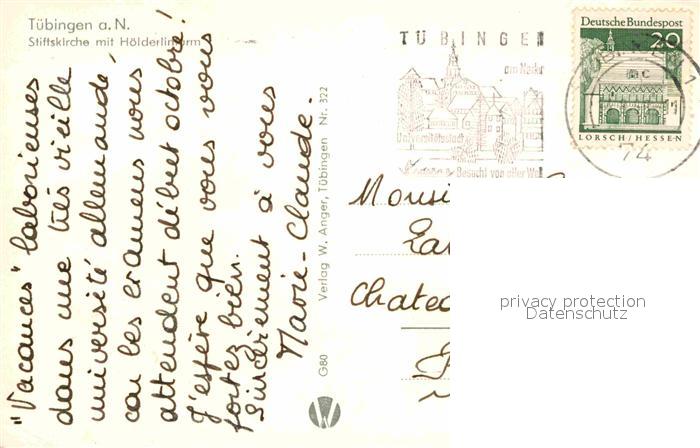 Tübingen a. N.
Stiftskirche mit Hölderlinturm
"Vacances" laborieuses
dans une très vieille
université allemande,
car les examens nous
attendent début octobre!
J'espère que vous vous
portez bien.
Sincèrement à vous
Marie-Claude.
Verlag W. Anger, Tübingen Nr. 322
G80
W
TÜBINGEN
am Neckar
Universitätsstadt
Besucht von aller Wel
74
Deutsche Bundespost
20
LORSCH/HESSEN
Monsi
Chatea
privacy protection
Datenschutz